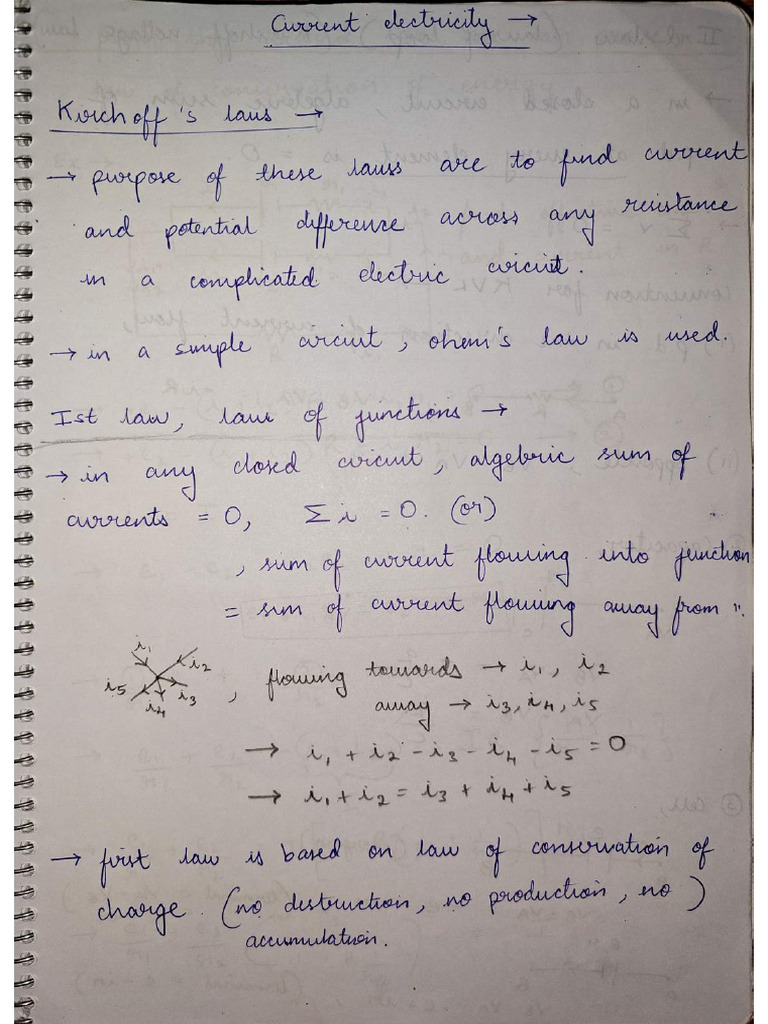 Current electricity →
Kirchoff's laws →
→ purpose of these laws are to find current
and potential difference across any resistance
in a complicated electric circuit.
→ in a simple circuit, ohem's law is used.
Ist law, law of junctions →
→ in any closed circuit, algebric sum of
currents = 0, Σi = 0. (or)
, sum of current flowing into junction
= sum of current flowing away from ".
i₁ i₂ i₃ i₄ i₅ , flowing towards → i₁, i₂
away → i₃, i₄, i₅
→ i₁ + i₂ - i₃ - i₄ - i₅ = 0
→ i₁ + i₂ = i₃ + i₄ + i₅
→ first law is based on law of conservation of
charge. (no destruction, no production, no
accumulation.)